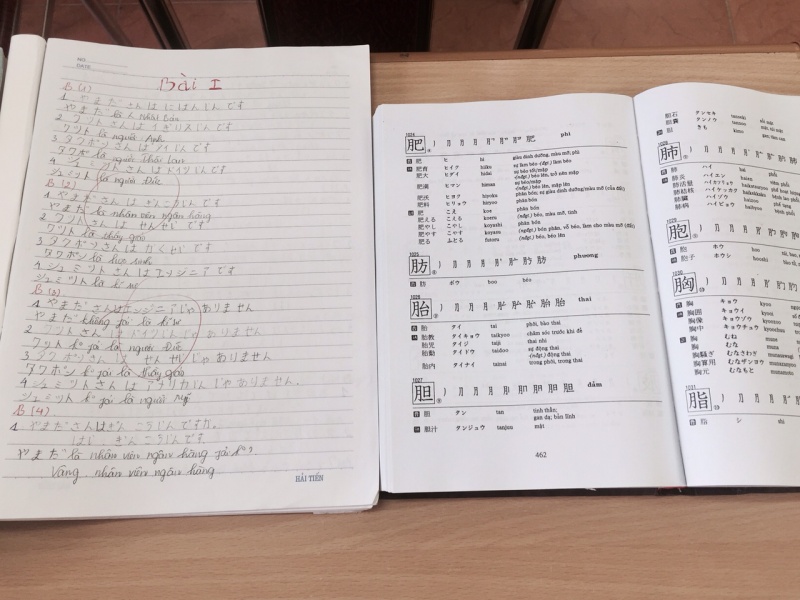 NO.
DATE
Bài I
B (1)
1 やまださんは にほんじんです
やまだ là người Nhật Bản
2 ワットさんは イギリスじんです
ワット là người Anh
3 タワポンさんは タイじんです
タワポン là người Thái Lan
4 シュミットさんは ドイツじんです
シュミット là người Đức
B (2)
1 やまださんは ぎんこういんです
やまだ là nhân viên ngân hàng
2 ワットさんは せんせいです
ワット là thầy giáo
3 タワポンさんは がくせいです
タワポン là học sinh
4 シュミットさんは エンジニアです
シュミット là kĩ sư
B (3)
1 やまださんは エンジニアじゃ ありません
やまだ không phải là kĩ sư
2 ワットさんは ドイツじんじゃ ありません
ワット k' phải là người Đức
3 タワポンさんは せんせいじゃ ありません
タワポン k' phải là thầy giáo
4 シュミットさんは アメリカじんじゃ ありません.
シュミット k' phải là người Mỹ
B (4)
1 やまださんは ぎんこういんですか.
はい、ぎんこういんです.
やまだ là nhân viên ngân hàng phải k'?
Vâng. nhân viên ngân hàng
HẢI TIẾN
1024
肥 phì
肥 ヒ hi giàu dinh dưỡng, màu mỡ; phì
肥育 ヒイク hiiku sự làm béo -(ngđt.) làm béo
肥大 ヒダイ hidai
肥満 ヒマン himan
肥沃 ヒヨク hiyoku
肥料 ヒリョウ hiryoo phân bón
肥 こえ koe phân bón
肥える こえる koeru (nđgt.) béo, màu mỡ, tinh
肥やし こやし koyashi phân bón
肥やす こやす koyasu
肥る ふとる futoru (nđgt.) béo, béo lên
1025
肪 phương
肪 ボウ boo béo
1026
胎 thai
胎 タイ tai phôi, bào thai
胎教 タイキョウ taikyoo chăm sóc trước khi đẻ
胎児 タイジ taiji thai nhi
胎動 タイドウ taidoo sự động thai
-(nđgt.) động thai
胎内 タイナイ tainai trong phôi, trong thai
1027
胆 đảm
胆 タン tan tinh thần;
gan dạ; bản lĩnh
胆汁 タンジュウ tanjuu mật
462
胆石 タンセキ tanseki
胆嚢 タンノウ tannoo
胆 きも kimo
1028
肺
肺 ハイ hai
肺炎 ハイエン haien
肺活量 ハイカツリョウ haikatsuryoo
肺結核 ハイケッカク haikekkaku
肺臓 ハイゾウ haizoo
肺病 ハイビョウ haibyoo
1029
胞
胞 ホウ hoo
胞子 ホウシ hooshi
1030
胸
胸 キョウ kyoo
胸囲 キョウイ kyooi
胸像 キョウゾウ kyoozoo
胸中 キョウチュウ kyoochuu
胸 むね mune
むな muna
胸騒ぎ むなさわぎ munasawagi
胸算用 むなざんよう
胸元 むなもと munamoto
1031
脂
脂 シ shi